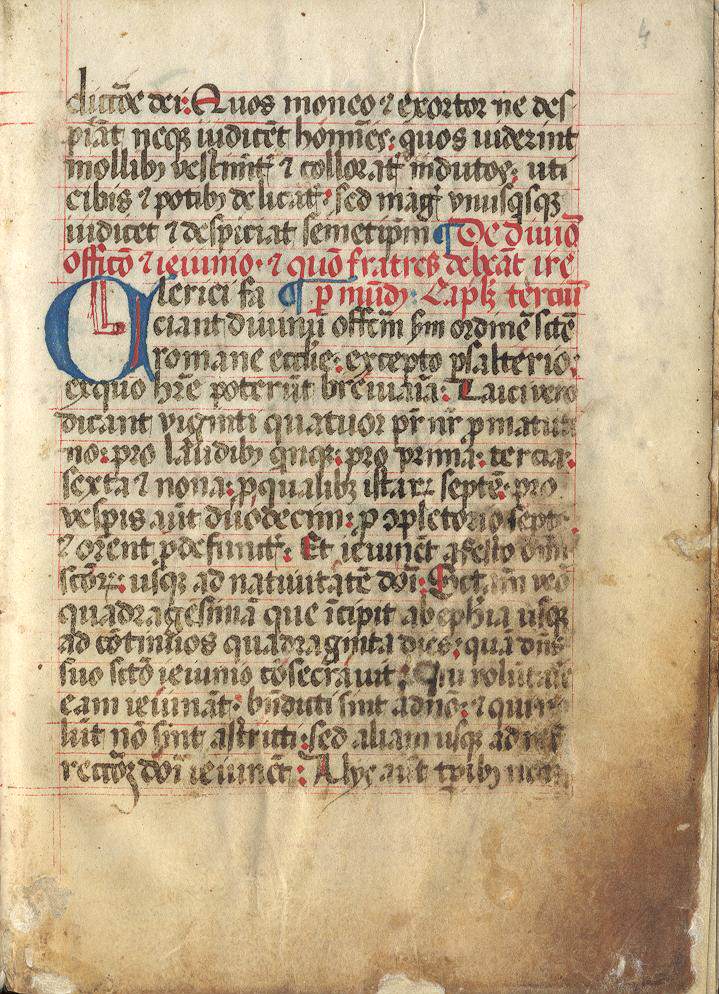 4
dictiõe dei: Quos moneo ⁊ exortor ne des
piãt neqꝫ iudicẽt hoĩnes: quos uiderint
mollibꝫ vestimẽt̃ ⁊ collorat̃ indutos: uti
cibis ⁊ potibꝫ delicat̃: sed mag̃ vnusqsqꝫ
iudicet ⁊ despiciat semetip̃m ¶ De diuĩo
offitõ ⁊ ieiunio· ⁊ quõ fratres debeãt ire
Clerici fa ¶ ꝑ mũdũ: Caplꝫ terciũ
ciant diuinũ offitm̃ sm̃ ordinẽ scẽ
romane eccl̃ie: excepto psalterio:
ex quo hr̃e poterũt breuiaria: Laici vero
dicant viginti quatuor pr̃ nr̃ ꝓ matuti
no: pro laudibꝫ qnqꝫ: pro prima: tercia:
sexta ⁊ nona: ꝓ qualibꝫ istaꝝ septẽ: pro
vesꝑis aũt duodecim: ꝓ ꝯpletorio septẽ:
⁊ orent ꝓ defunct̃: Et ieiunẽt a festo om̃i
sctõꝝ: usqꝫ ad natiuitatẽ dñi: Sctam vero
quadragesimã que ĩcipit ab epħia usqꝫ
ad cõtinuos quadraginta dies: quã dñs
suo sctõ ieiunio cõsecrauit: Qui volũtarie
eam ieiunãt: bñdicti sint a dño: ⁊ qui no
lũt nõ sint astricti: sed aliam usqꝫ ad resur
rectõꝫ dñi ieiunẽt: Alys aũt tp̃ibꝫ